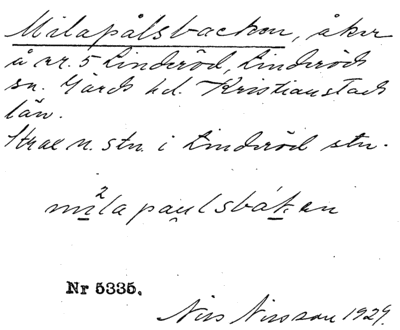 Milapålsbacken, åker
å nr. 5 Linderöd, Linderöds
sn. Gärds hd. Kristianstads
län.
Strax n. stn. i Linderöd stn.
mi²lapau̯lsbákan
Nr 5335.
Nils Nilsson 1929.